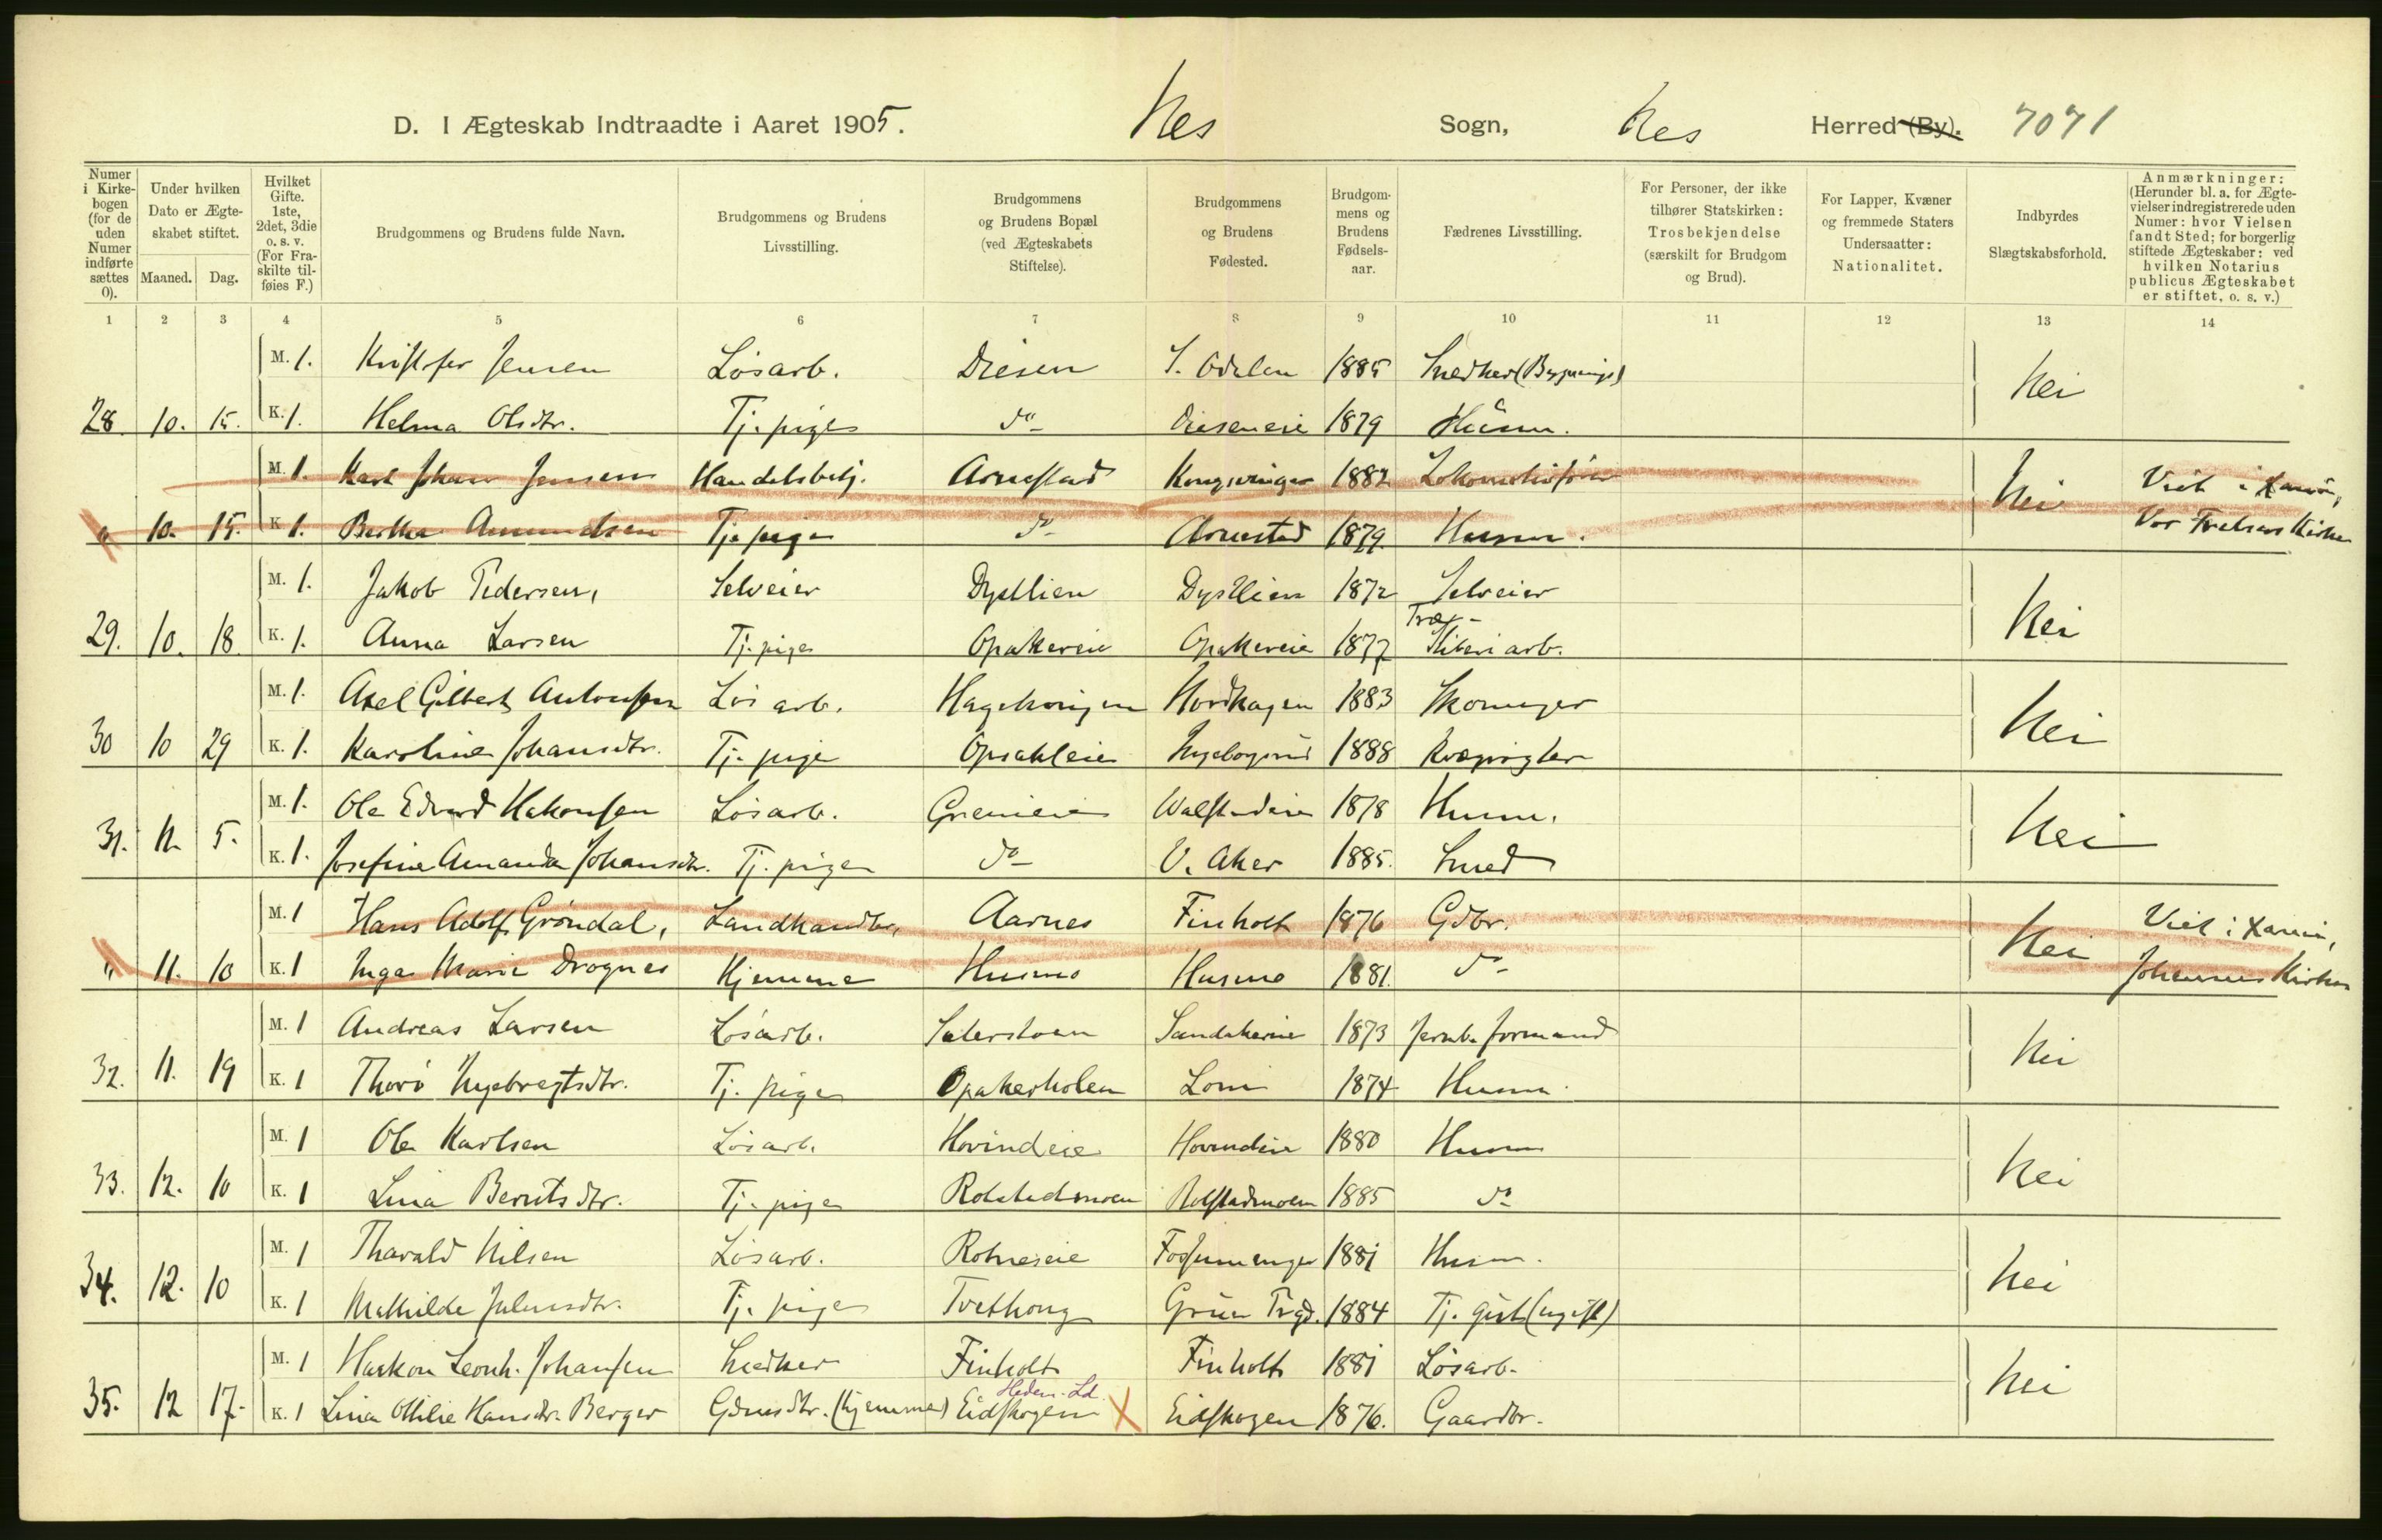 D. I Ægteskab Indtraadte i Aaret 1905. Nes Sogn, Nes Herred (By). 7071
Numer i Kirkebogen (for de uden Numer indførte sættes 0).
Under hvilken Dato er Ægteskabet stiftet.
Maaned. Dag.
Hvilket Gifte. 1ste, 2det, 3die o. s. v. (For Fraskilte tilføies F.)
Brudgommens og Brudens fulde Navn.
Brudgommens og Brudens Livsstilling.
Brudgommens og Brudens Bopæl (ved Ægteskabets Stiftelse).
Brudgommens og Brudens Fødested.
Brudgommens og Brudens Fødselsaar.
Fædrenes Livsstilling.
For Personer, der ikke tilhører Statskirken: Trosbekjendelse (særskilt for Brudgom og Brud).
For Lapper, Kvæner og fremmede Staters Undersaatter: Nationalitet.
Indbyrdes Slægtskabsforhold.
Anmærkninger: (Herunder bl. a. for Ægtevielser indregistrerede uden Numer: hvor Vielsen fandt Sted; for borgerlig stiftede Ægteskaber: ved hvilken Notarius publicus Ægteskabet er stiftet, o. s. v.)
1 2 3 4 5 6 7 8 9 10 11 12 13 14
M. 1. Kristofer Jensen Løsarb. Diesen S. Odalen 1885 Snedker (Bygnings) Nei
28. 10. 15. K. 1. Helma Olsdtr. Tj. pige do Dieseneie 1879 Husm.
M. 1. Karl Johan Jensen Handelsbetj. Arnestad Kongsvinger 1882 Lokomotivfører Nei Viet i Xania,
" 10. 15. K 1. Berthe Amundsen Tj. pige do Arnestad 1879. Husm. Vor Frelsers Kirke
M. 1. Jakob Pedersen, Selveier Dystlien Dystlien 1872 Selveier Nei
29. 10. 18. K. 1. Anna Larsen Tj. pige Opakereie Opakereie 1877 Træsliberiarb.
M. 1. Axel Gilbert Antonsen Løsarb. Nordhagen 1883 Skomager Nei
30 10 29 K. 1. Karoline Johansdtr. Tj. pige Opsahleie 1888
M. 1. Ole Edvard Hakonsen Løsarb. 1878 Husm. Nei
31. 11. 5. K. 1. Josefine Amanda Johansdtr. Tj. pige do V. Aker 1885. Smed
M. 1 Hans Adolf Grøndal, Landhandler, Aarnes Finholt 1876 Gdbr. Nei Viet i Xania,
" 11. 10 K. 1 Inga Marie Drognes Hjemme Husmo Husmo 1881. do Johannes Kirke
M. 1 Andreas Larsen Løsarb. Saterstoen 1873 Jernb. formand Nei
32. 11. 19 K. 1 Thora Ingebregtsdtr. Tj. pige Opakerholen Lom 1874 Husm.
M. 1 Ole Karlsen Løsarb. Hovindeie Hovindeie 1880 Husm Nei
33. 12. 10 K. 1 Lina Berntsdtr. Tj. pige Rolstadmoen Rolstadmoen 1885 do
M. 1 Tharald Nilsen Løsarb. Rotneseie Fossumenger 1881 Husm. Nei
34. 12. 10 K. 1 Mathilde Juliusdtr. Tj. pige Tvethoug Grue Prgd. 1884 Tj. gut (ugift)
M. 1 Haakon Leonh. Johansen Snedker Finholt Finholt 1881 Løsarb. Nei
Hedm. Ld.
35. 12 17. K. 1 Lina Otilie Hansdtr. Berger Gdmsdtr. (hjemme) Eidskogen X Eidskogen 1876. Gaardbr.